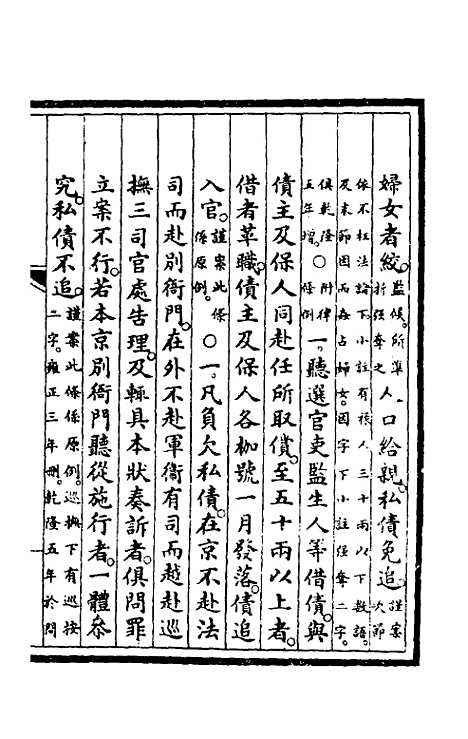 婦女者絞。監候。所準折强奪之人口給親。私債免追。謹案次節
依不枉法論下小註有祿人三十兩以下數語。
及末節因而姦占婦女。因字下小註强奪二字。
俱乾隆五年增。○附律條例一聽選官吏監生人等借債。與
債主及保人同赴任所取償。至五十兩以上者。
借者革職。債主及保人各枷號一月發落。債追
入官。謹案此條係原例。○一凡負欠私債。在京不赴法
司而赴別衙門。在外不赴軍衛有司而越赴巡
撫三司官處告理。及輒具本狀奏訴者。俱問罪
立案不行。若本京別衙門聽從施行者。一體叅
究。私債不追。謹案此條係原例。巡撫下有巡按二字。雍正三年刪。乾隆五年於問